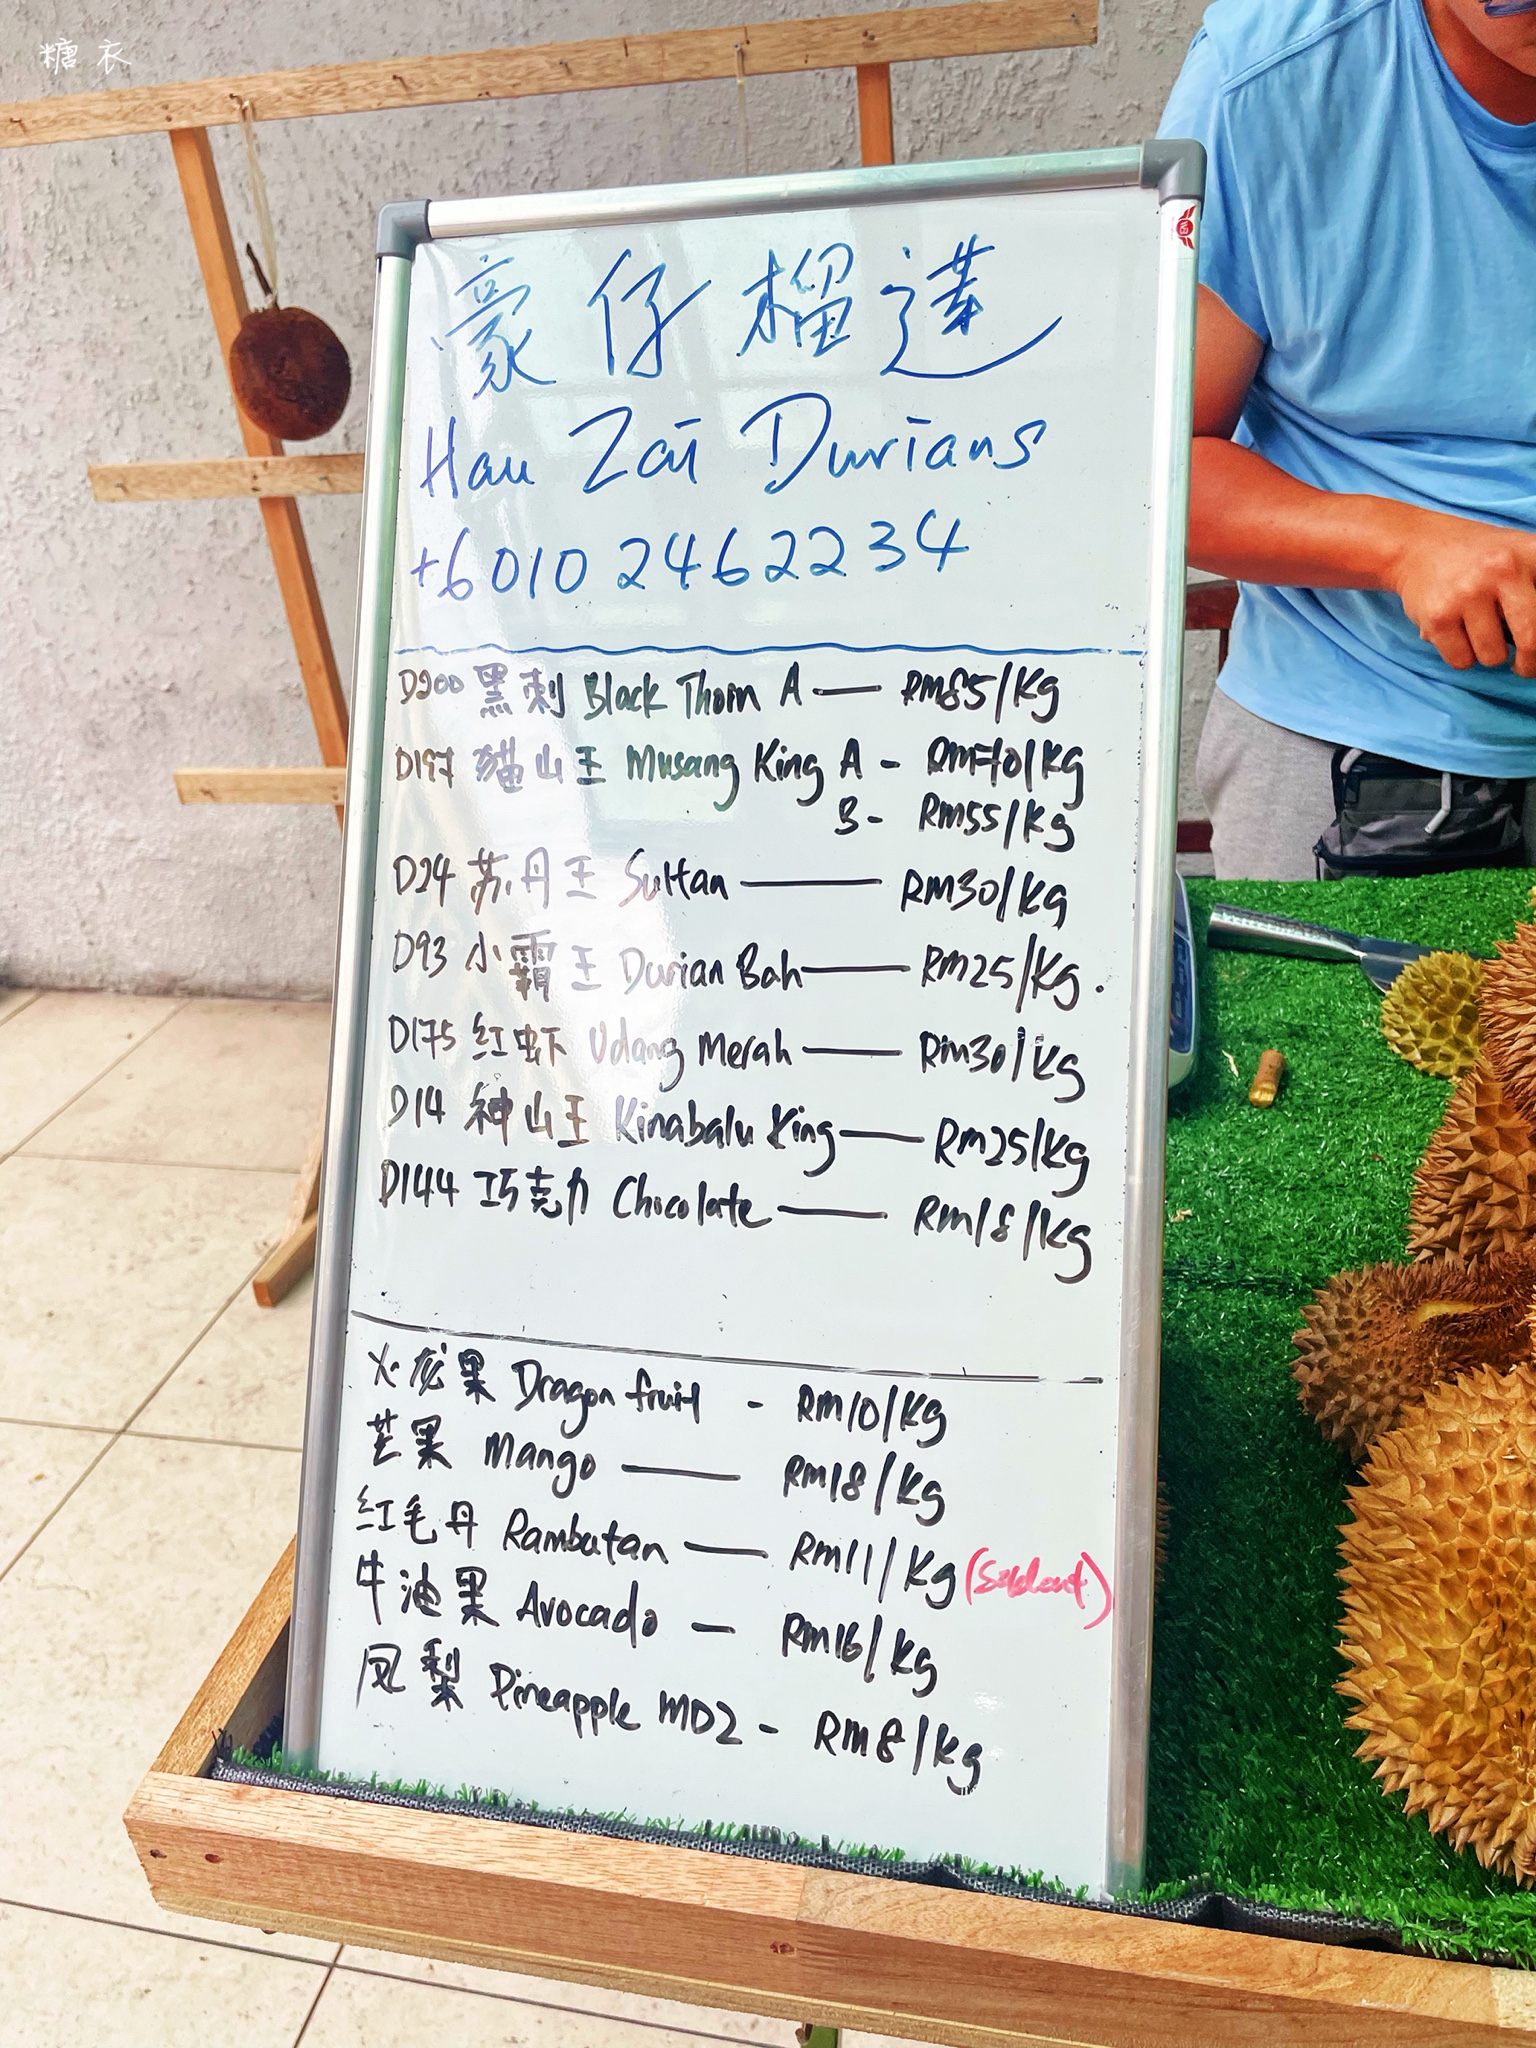 糖衣
豪仔榴莲
Hau Zai Durians
+6010 2462234
D200 黑刺 Black Thorn A — RM85/Kg
D197 貓山王 Musang King A - RM70/Kg
B- RM55/Kg
D24 苏丹王 Sultan — RM30/Kg
D93 小霸王 Durian Bah — RM25/Kg.
D175 红虾 Udang Merah — RM30/Kg
D14 神山王 Kinabalu King — RM25/Kg
D144 巧克力 Chocolate — RM18/Kg
火龙果 Dragon fruit - RM10/Kg
芒果 Mango — RM18/Kg
红毛丹 Rambutan — RM11/Kg (Sold out)
牛油果 Avocado — RM16/Kg
凤梨 Pineapple MD2 - RM8/Kg